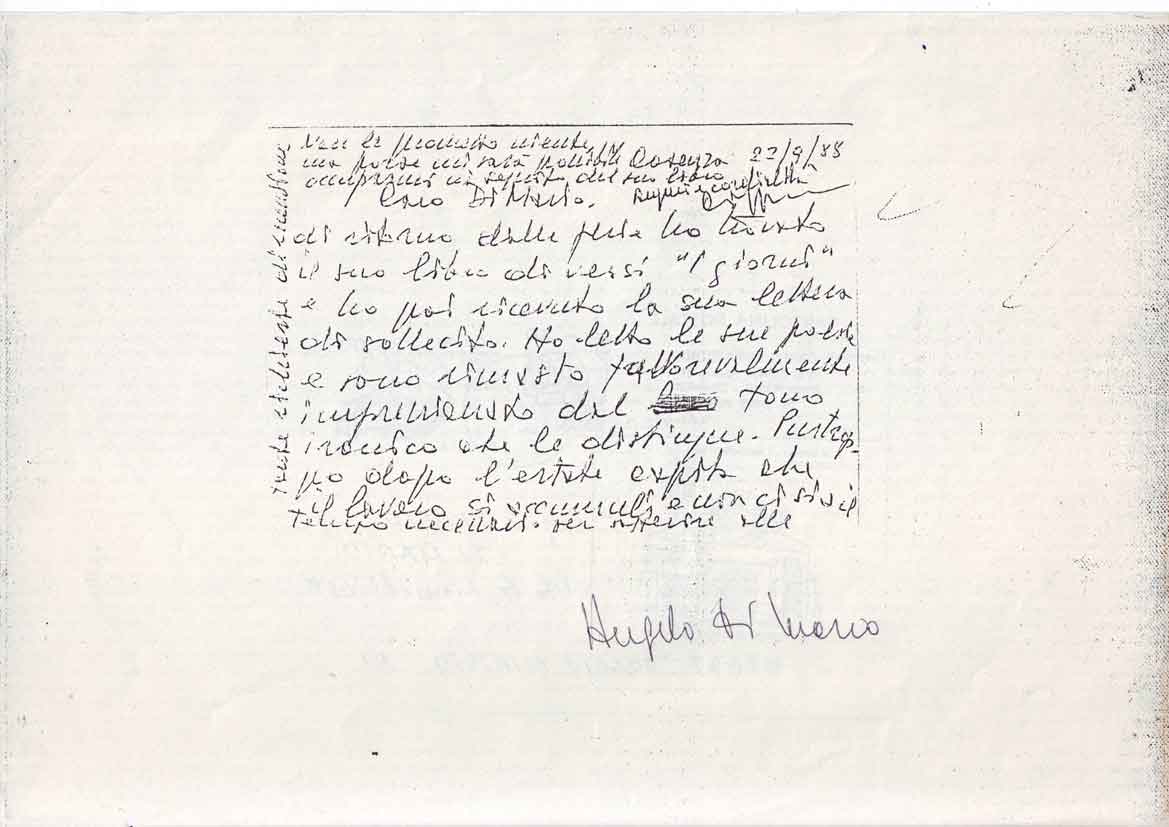 Non le prometto niente,
ma forse mi sarà possibile Cosenza 22/9/88
occuparmi in seguito del suo libro
Caro Di Mario. Auguri e cordialità
di ritorno dalle ferie ho trovato
il suo libro di versi "I giorni"
e ho poi ricevuto la sua lettera
di sollecito. Ho letto le sue poesie
e sono rimasto favorevolmente
impressionato dal tono
ironico che le distingue. Purtrop-
po dopo l'estate capita che
il lavoro si accumuli e non ci sia il
tempo necessario per alle
tante richieste di
Angelo Di Mario